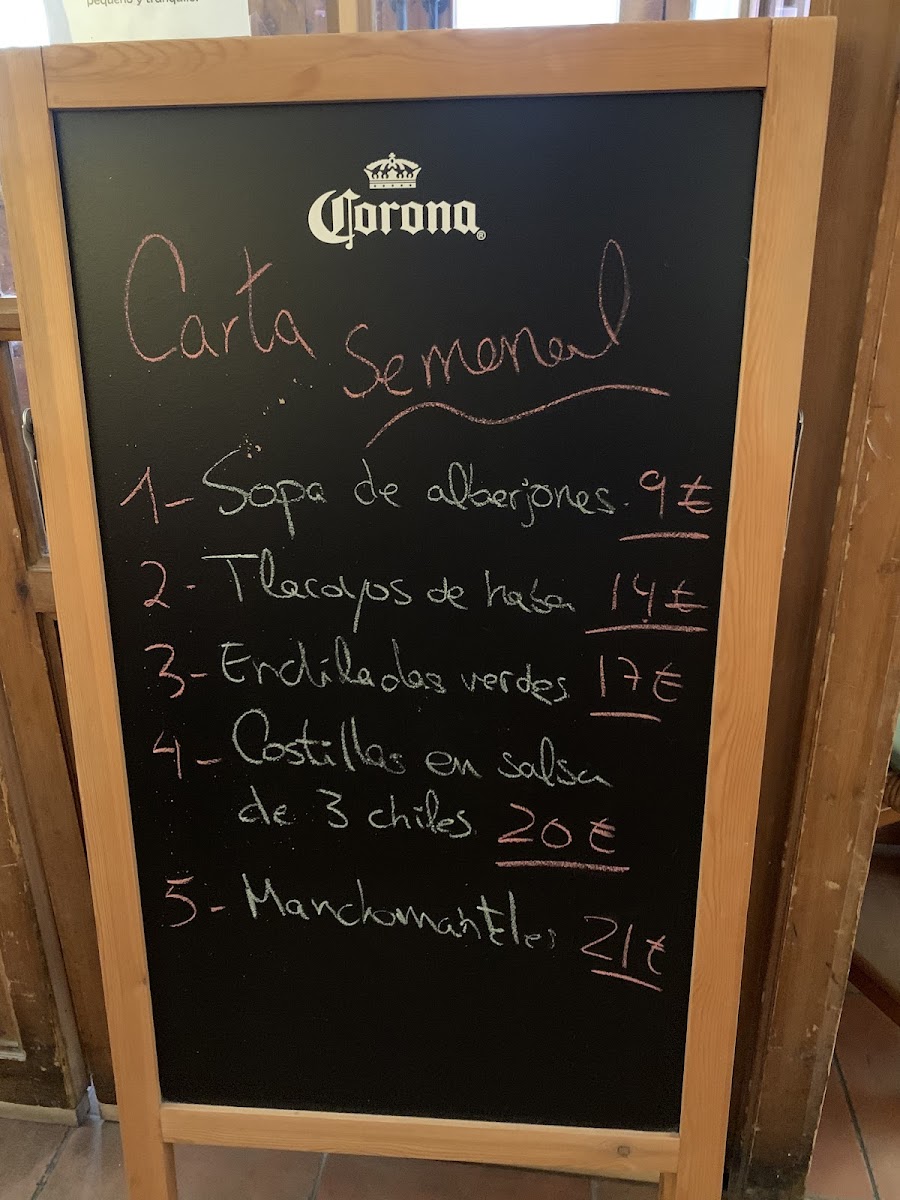 pequeño y tranquilo.
Corona®
Carta
Semanal
1- Sopa de alberjones. 9€
2- Tlacoyos de haba 14€
3- Enchiladas verdes 17€
4- Costillas en salsa
de 3 chiles 20€
5- Manchamanteles 21€